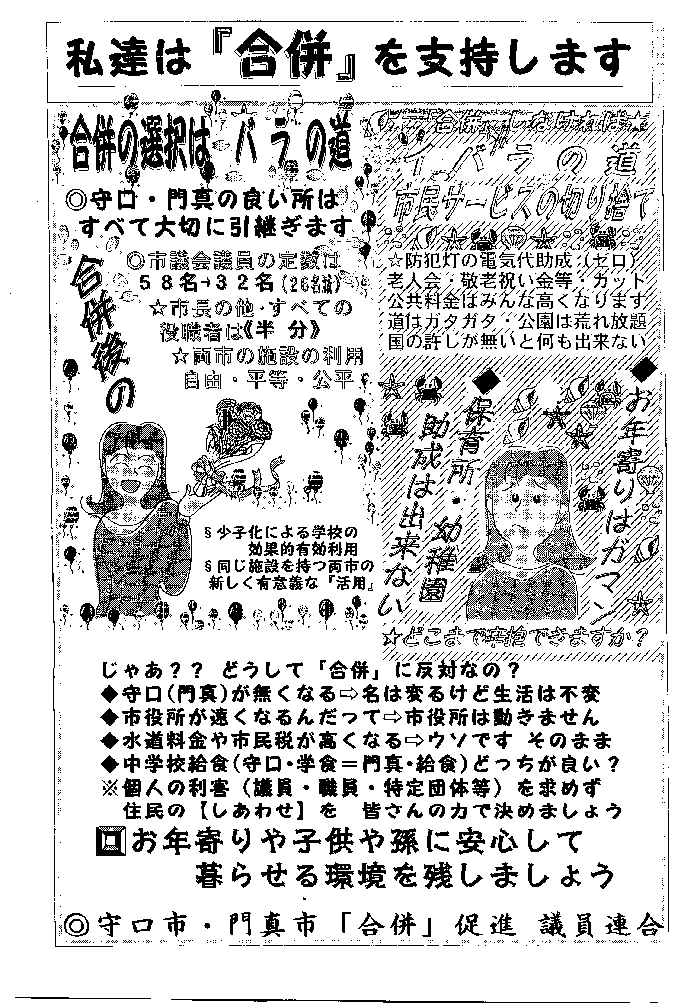 私達は『合併』を支持します
合併の選択は バラの道
◎守口・門真の良い所は
すべて大切に引継ぎます
合併後の
◎市議会議員の定数は
58名→32名(26名減)
☆市長の他・すべての
役職者は《半分》
☆両市の施設の利用
自由・平等・公平
§少子化による学校の
効果的有効利用
§同じ施設を持つ両市の
新しく有意義な『活用』
合併・しなければ
イバラの道
市民サービスの切り捨て
☆防犯灯の電気代助成:(ゼロ)
老人会・敬老祝い金等・カット
公共料金はみんな高くなります
道はガタガタ・公園は荒れ放題
国の許しが無いと何も出来ない
◆お年寄りはガマン
◆保育所・幼稚園
助成は出来ない
☆どこまで辛抱できますか?
じゃあ?? どうして「合併」に反対なの?
◆守口(門真)が無くなる⇨名は変るけど生活は不変
◆市役所が遠くなるんだって⇨市役所は動きません
◆水道料金や市民税が高くなる⇨ウソです そのまま
◆中学校給食(守口・学食=門真・給食)どっちが良い?
※個人の利害(議員・職員・特定団体等)を求めず
住民の【しあわせ】を 皆さんの力で決めましょう
回お年寄りや子供や孫に安心して
暮らせる環境を残しましょう
◎守口市・門真市「合併」促進 議員連合